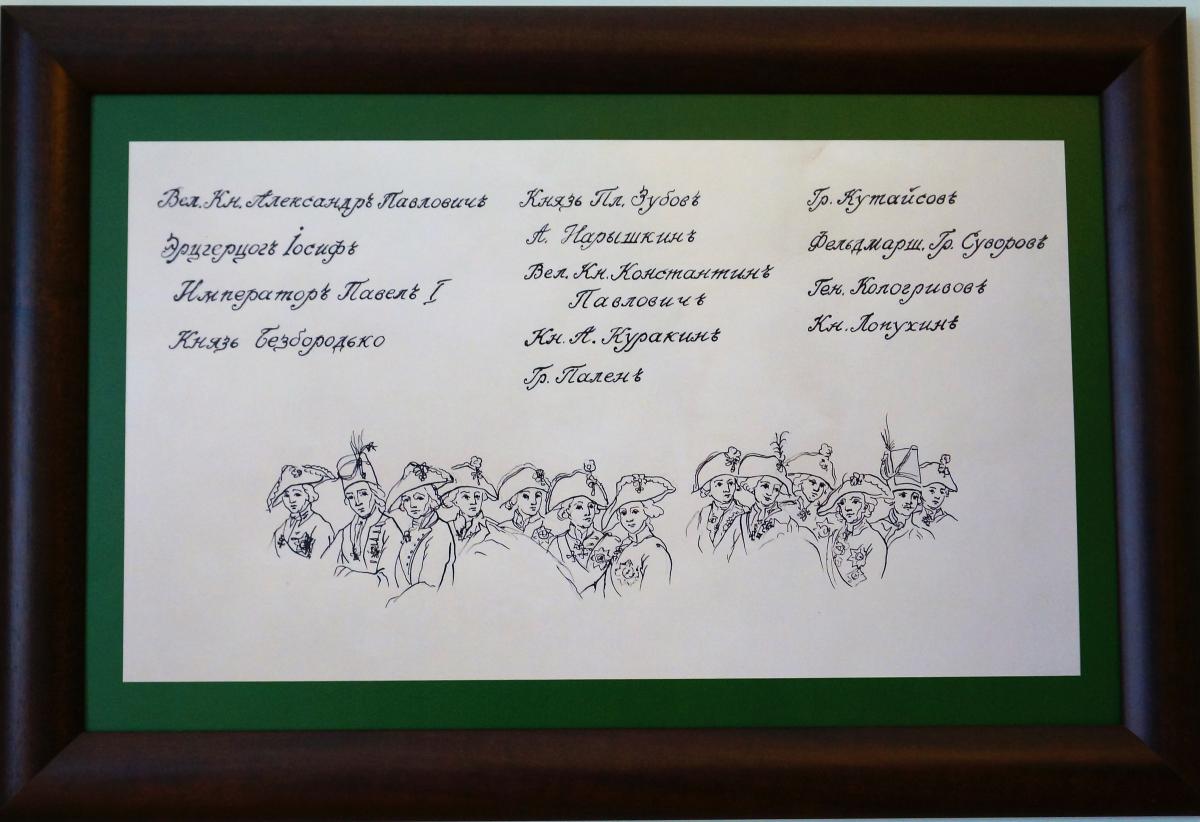 Вел. Кн. Александръ Павловичъ
Эрцгерцогъ Іосифъ
Императоръ Павелъ I
Князь Безбородько
Князь Пл. Зубовъ
А. Нарышкинъ
Вел. Кн. Константинъ
Павловичъ
Кн. А. Куракинъ
Гр. Паленъ
Гр. Кутайсовъ
Фельдмарш. Гр. Суворовъ
Ген. Кологривовъ
Кн. Лопухинъ